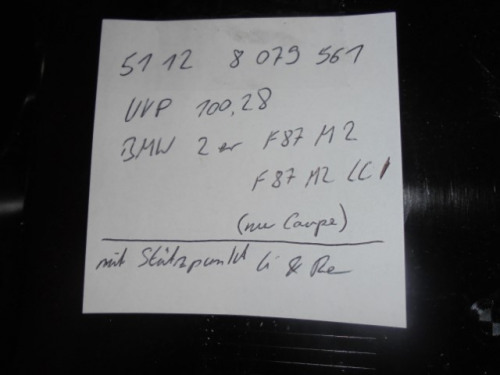 51 12 8 079 561
UVP 100,28
BMW 2 er F87 M2
F87 M2 LCI
(nur Coupe)
mit Stützpunkt Li & Re